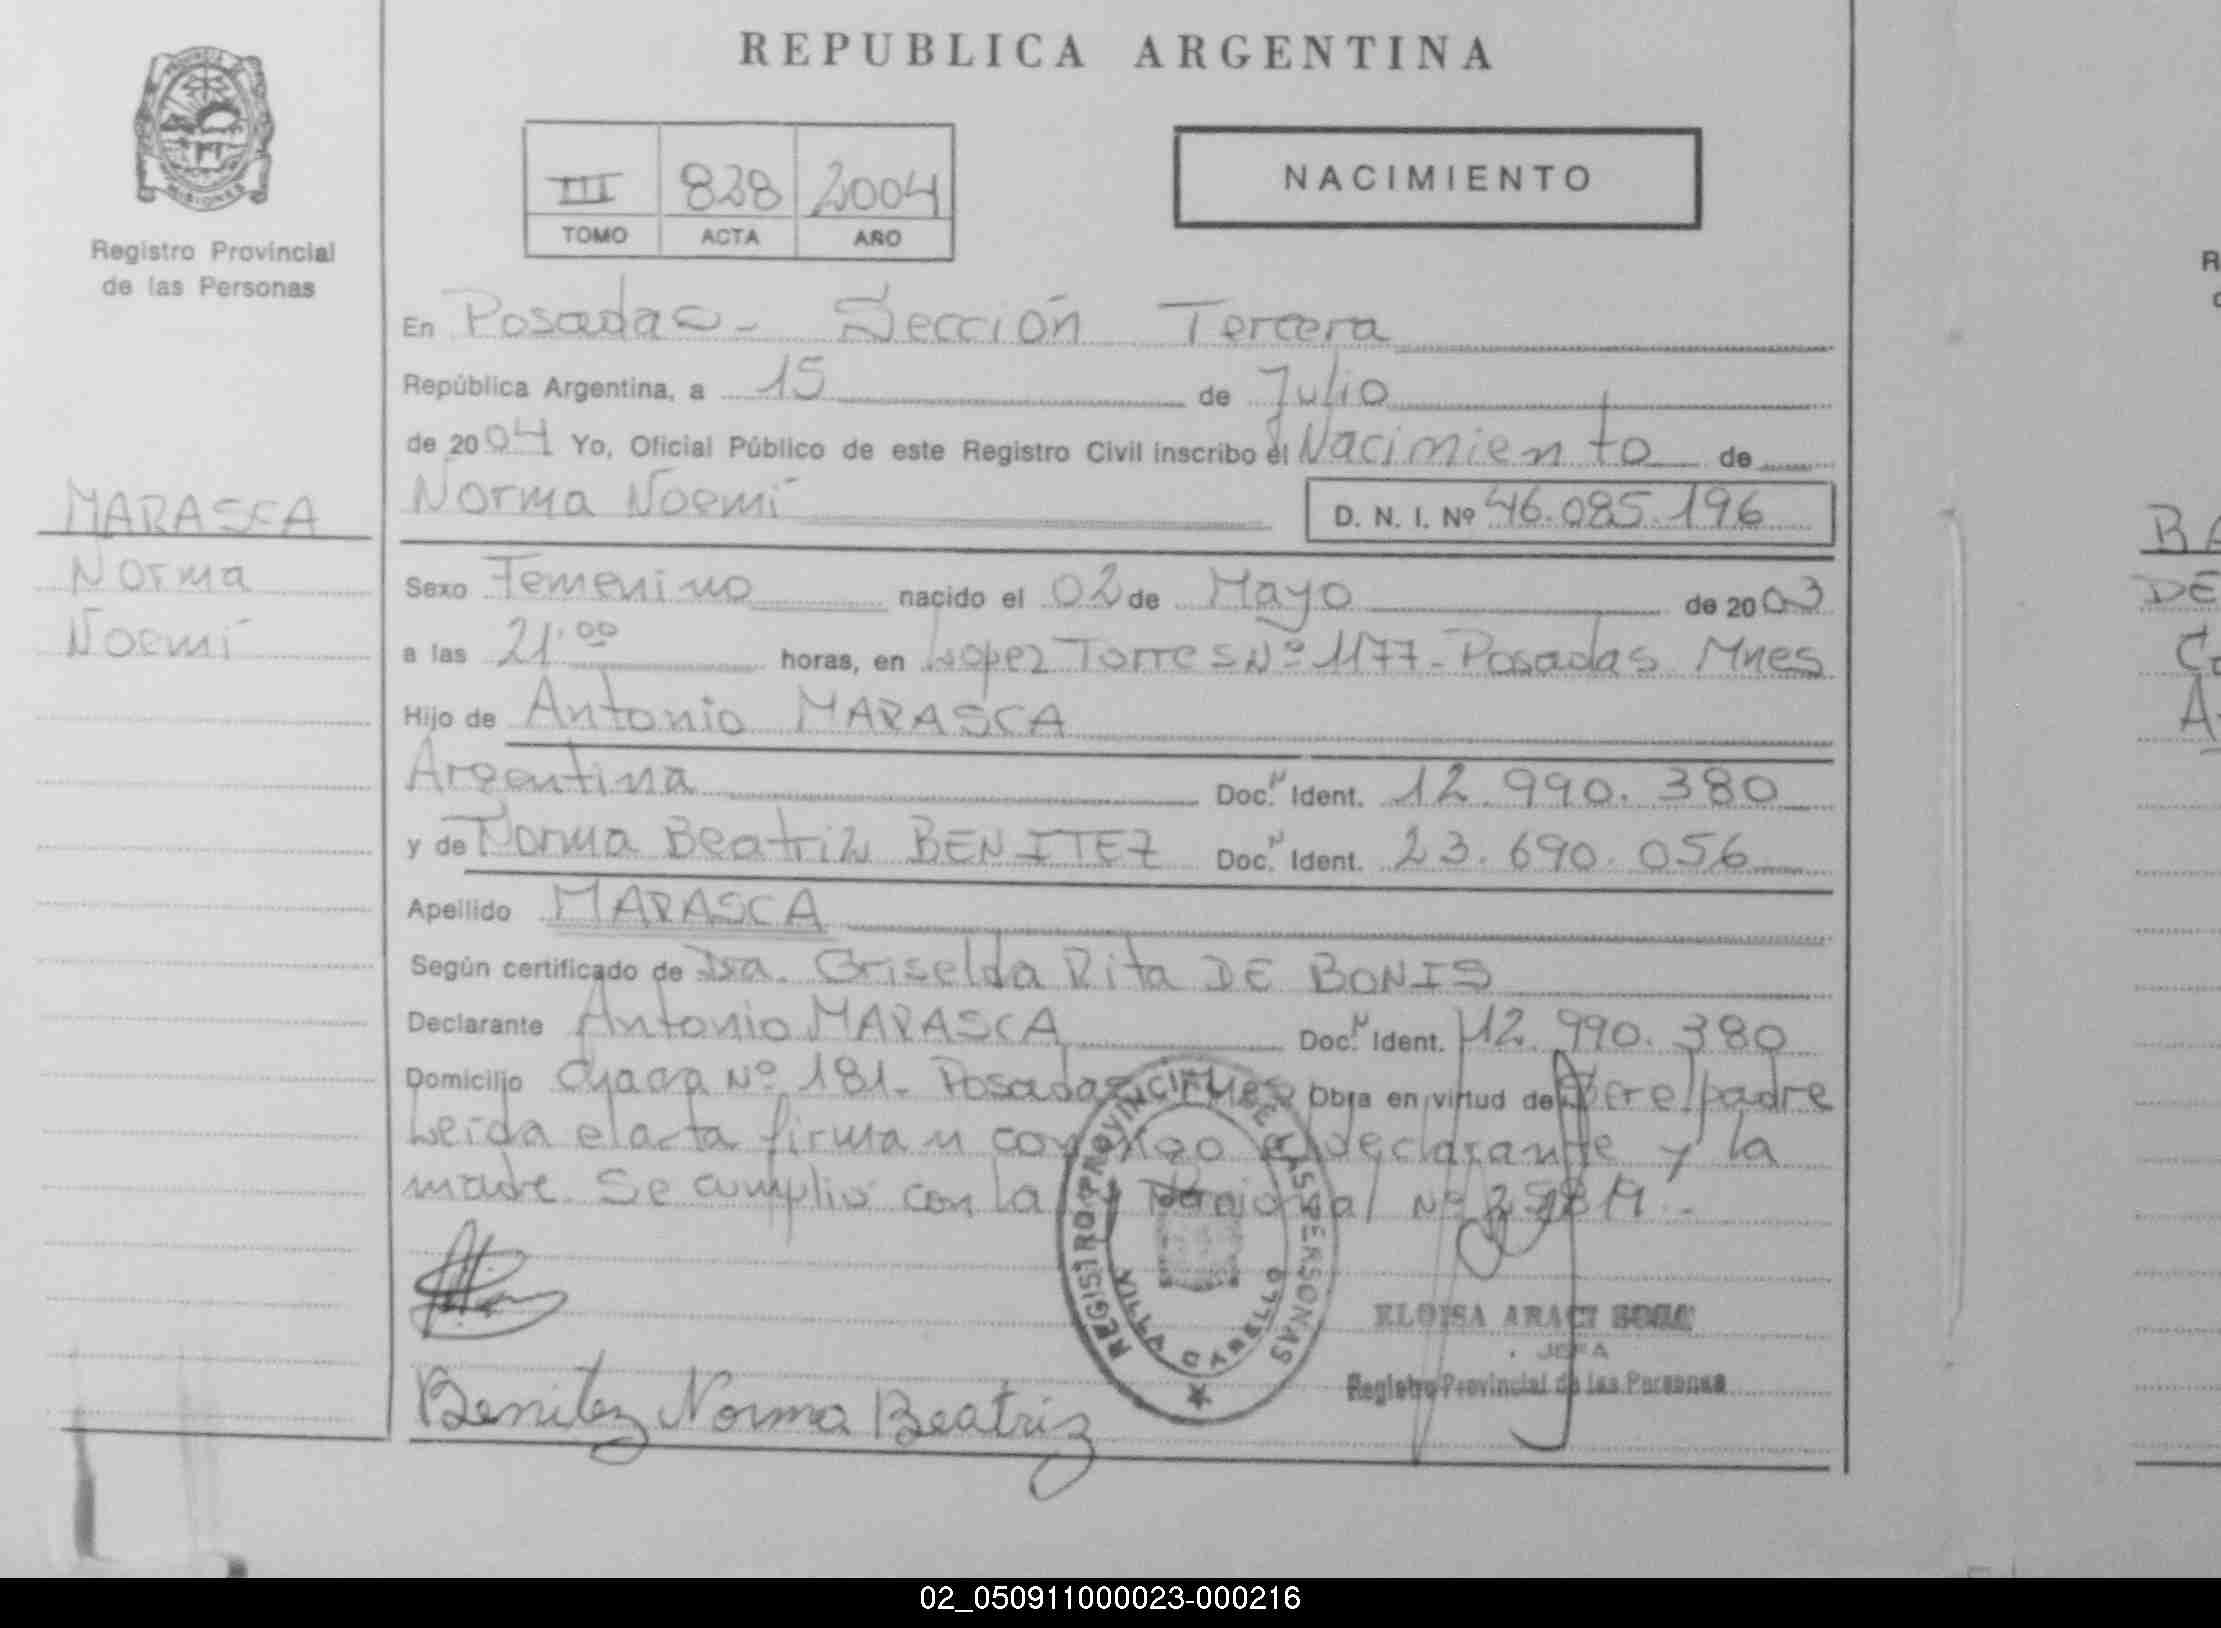 REPUBLICA ARGENTINA
PROVINCIA DE MISIONES
Registro Provincial
de las Personas
III 828 2004
TOMO ACTA AÑO
NACIMIENTO
En Posadas - Sección Tercera
República Argentina, a 15 de Julio
de 2004 Yo, Oficial Público de este Registro Civil inscribo el Nacimiento de
MARASCA
Norma
Noemí
Norma Noemí D. N. I. Nº 46.085.196
Sexo Femenino nacido el 02 de Mayo de 2003
a las 21.00 horas, en Lopez Torres Nº 1177 - Posadas Mnes
Hijo de Antonio MARASCA
Argentina Doc. N Ident. 12.990.380
y de Norma Beatriz BENITEZ Doc. N Ident. 23.690.056
Apellido MARASCA
Según certificado de Dra. Griselda Rita DE BONIS
Declarante Antonio MARASCA Doc. N Ident. 12.990.380
Domicilio Chacra Nº 181 - Posadas Mnes Obra en virtud de Ser el padre
Leída el acta firman conmigo el declarante y la
madre. Se cumplio con la Nacional Nº
REGISTRO PROVINCIAL DE LAS PERSONAS
VILLA CABELLO
ELOISA ARACI
JEFA
Registro Provincial de las Personas
Benitez Norma Beatriz
R
BA
DE
02_050911000023-000216